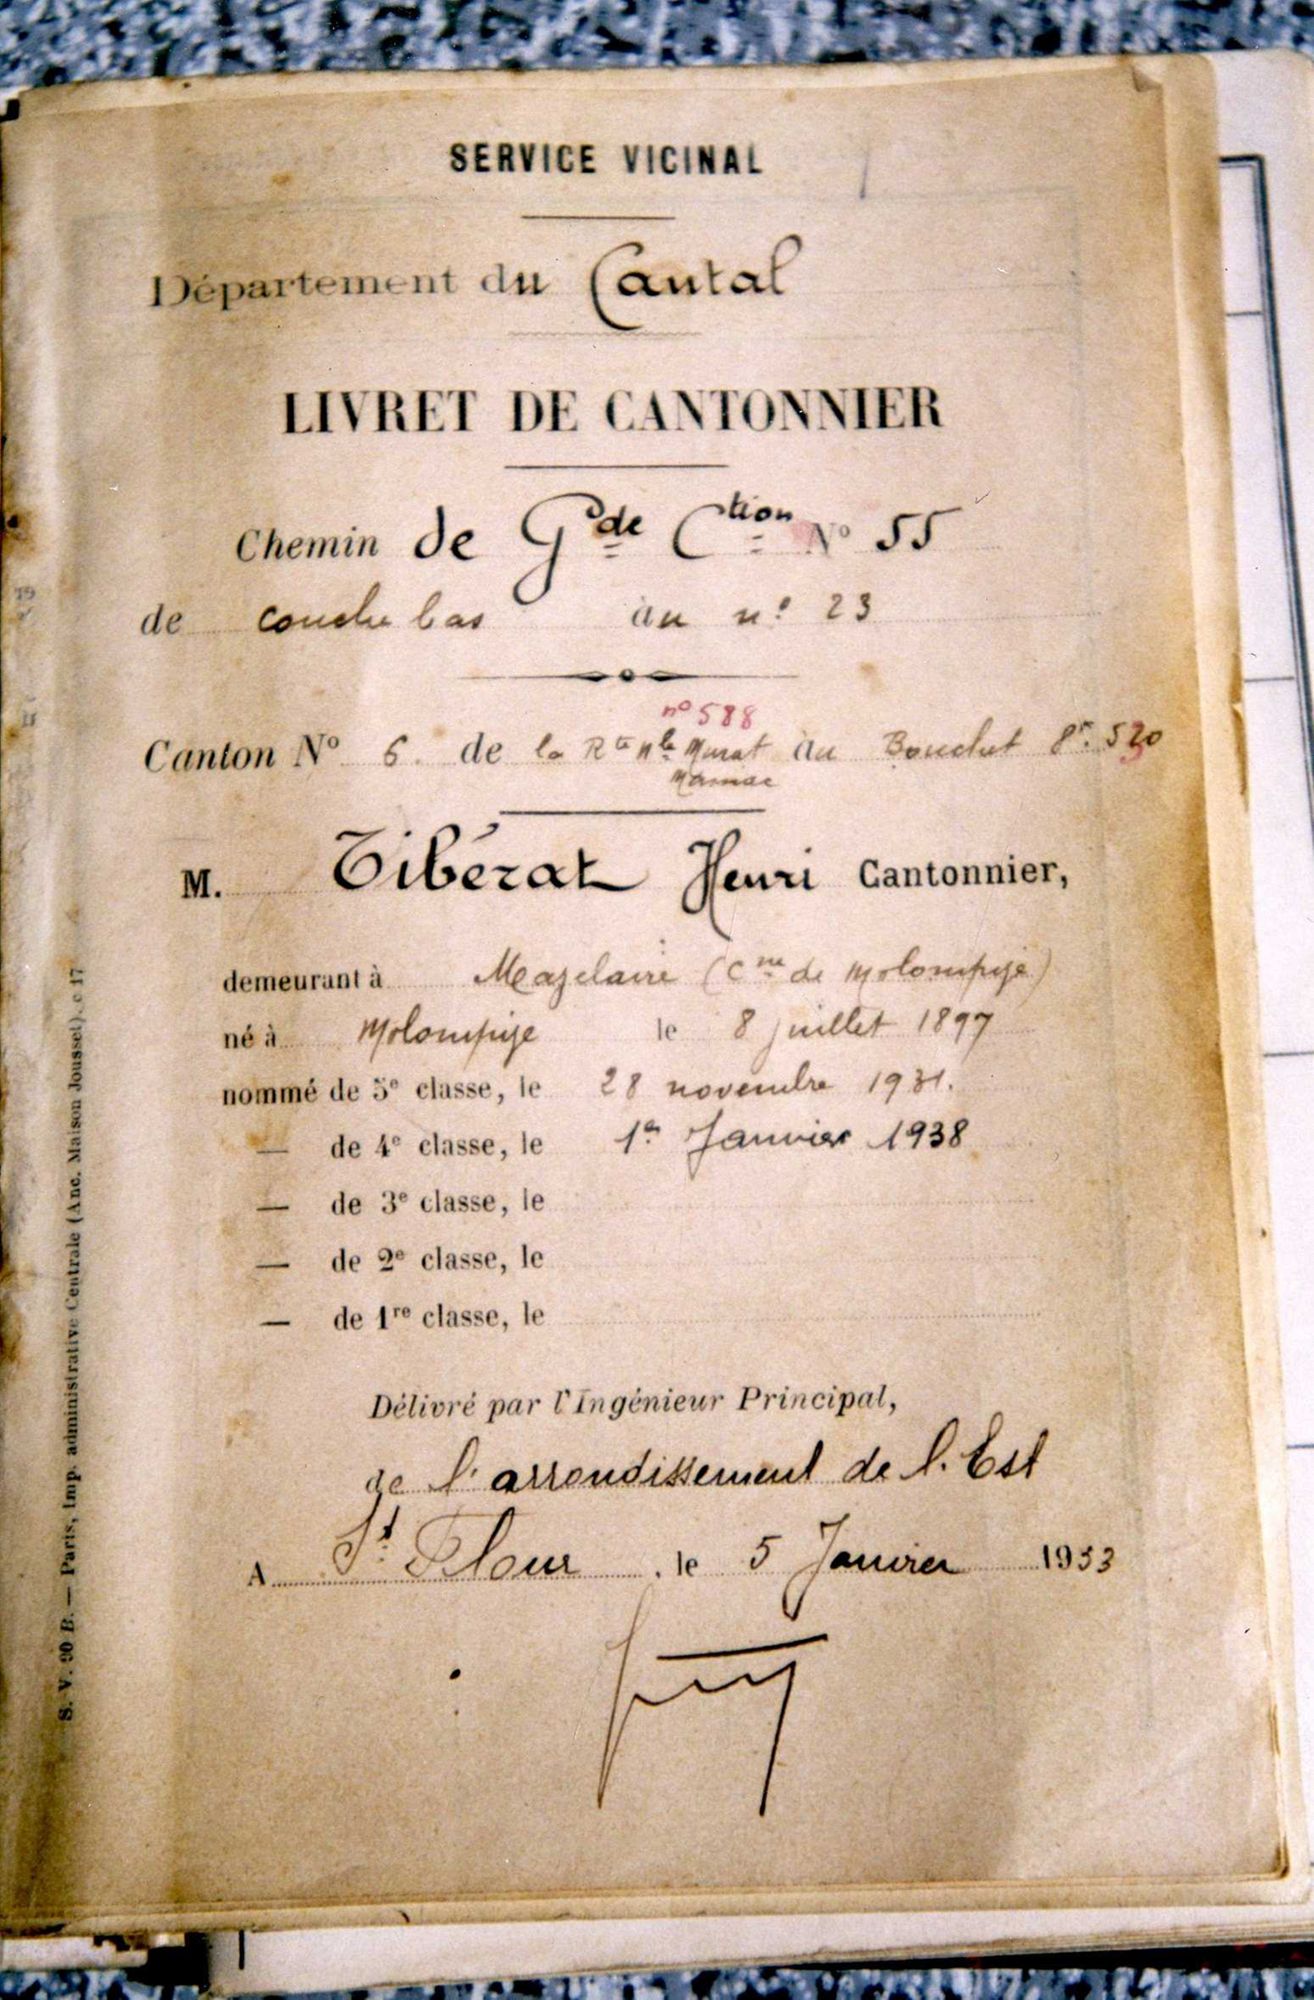 SERVICE VICINAL
Département du Cantal
LIVRET DE CANTONNIER
Chemin de Gde Ction No 55
de couche bas au no 23
no 588
Canton No 6. de la Rte Nle Murat au Bouchet
M. Tibérat Henri Cantonnier,
demeurant à Mazelaire (Cne de Molompize)
né à Molompize le 8 juillet 1897
nommé de 5e classe, le 28 novembre 1931.
— de 4e classe, le 1er Janvier 1938
— de 3e classe, le
— de 2e classe, le
— de 1re classe, le
Délivré par l'Ingénieur Principal,
de l'arrondissement de l'Est
A St Flour, le 5 Janvier 1933
S. V. 90 B. — Paris, Imp. administrative Centrale (Anc. Maison Jousset). c 17